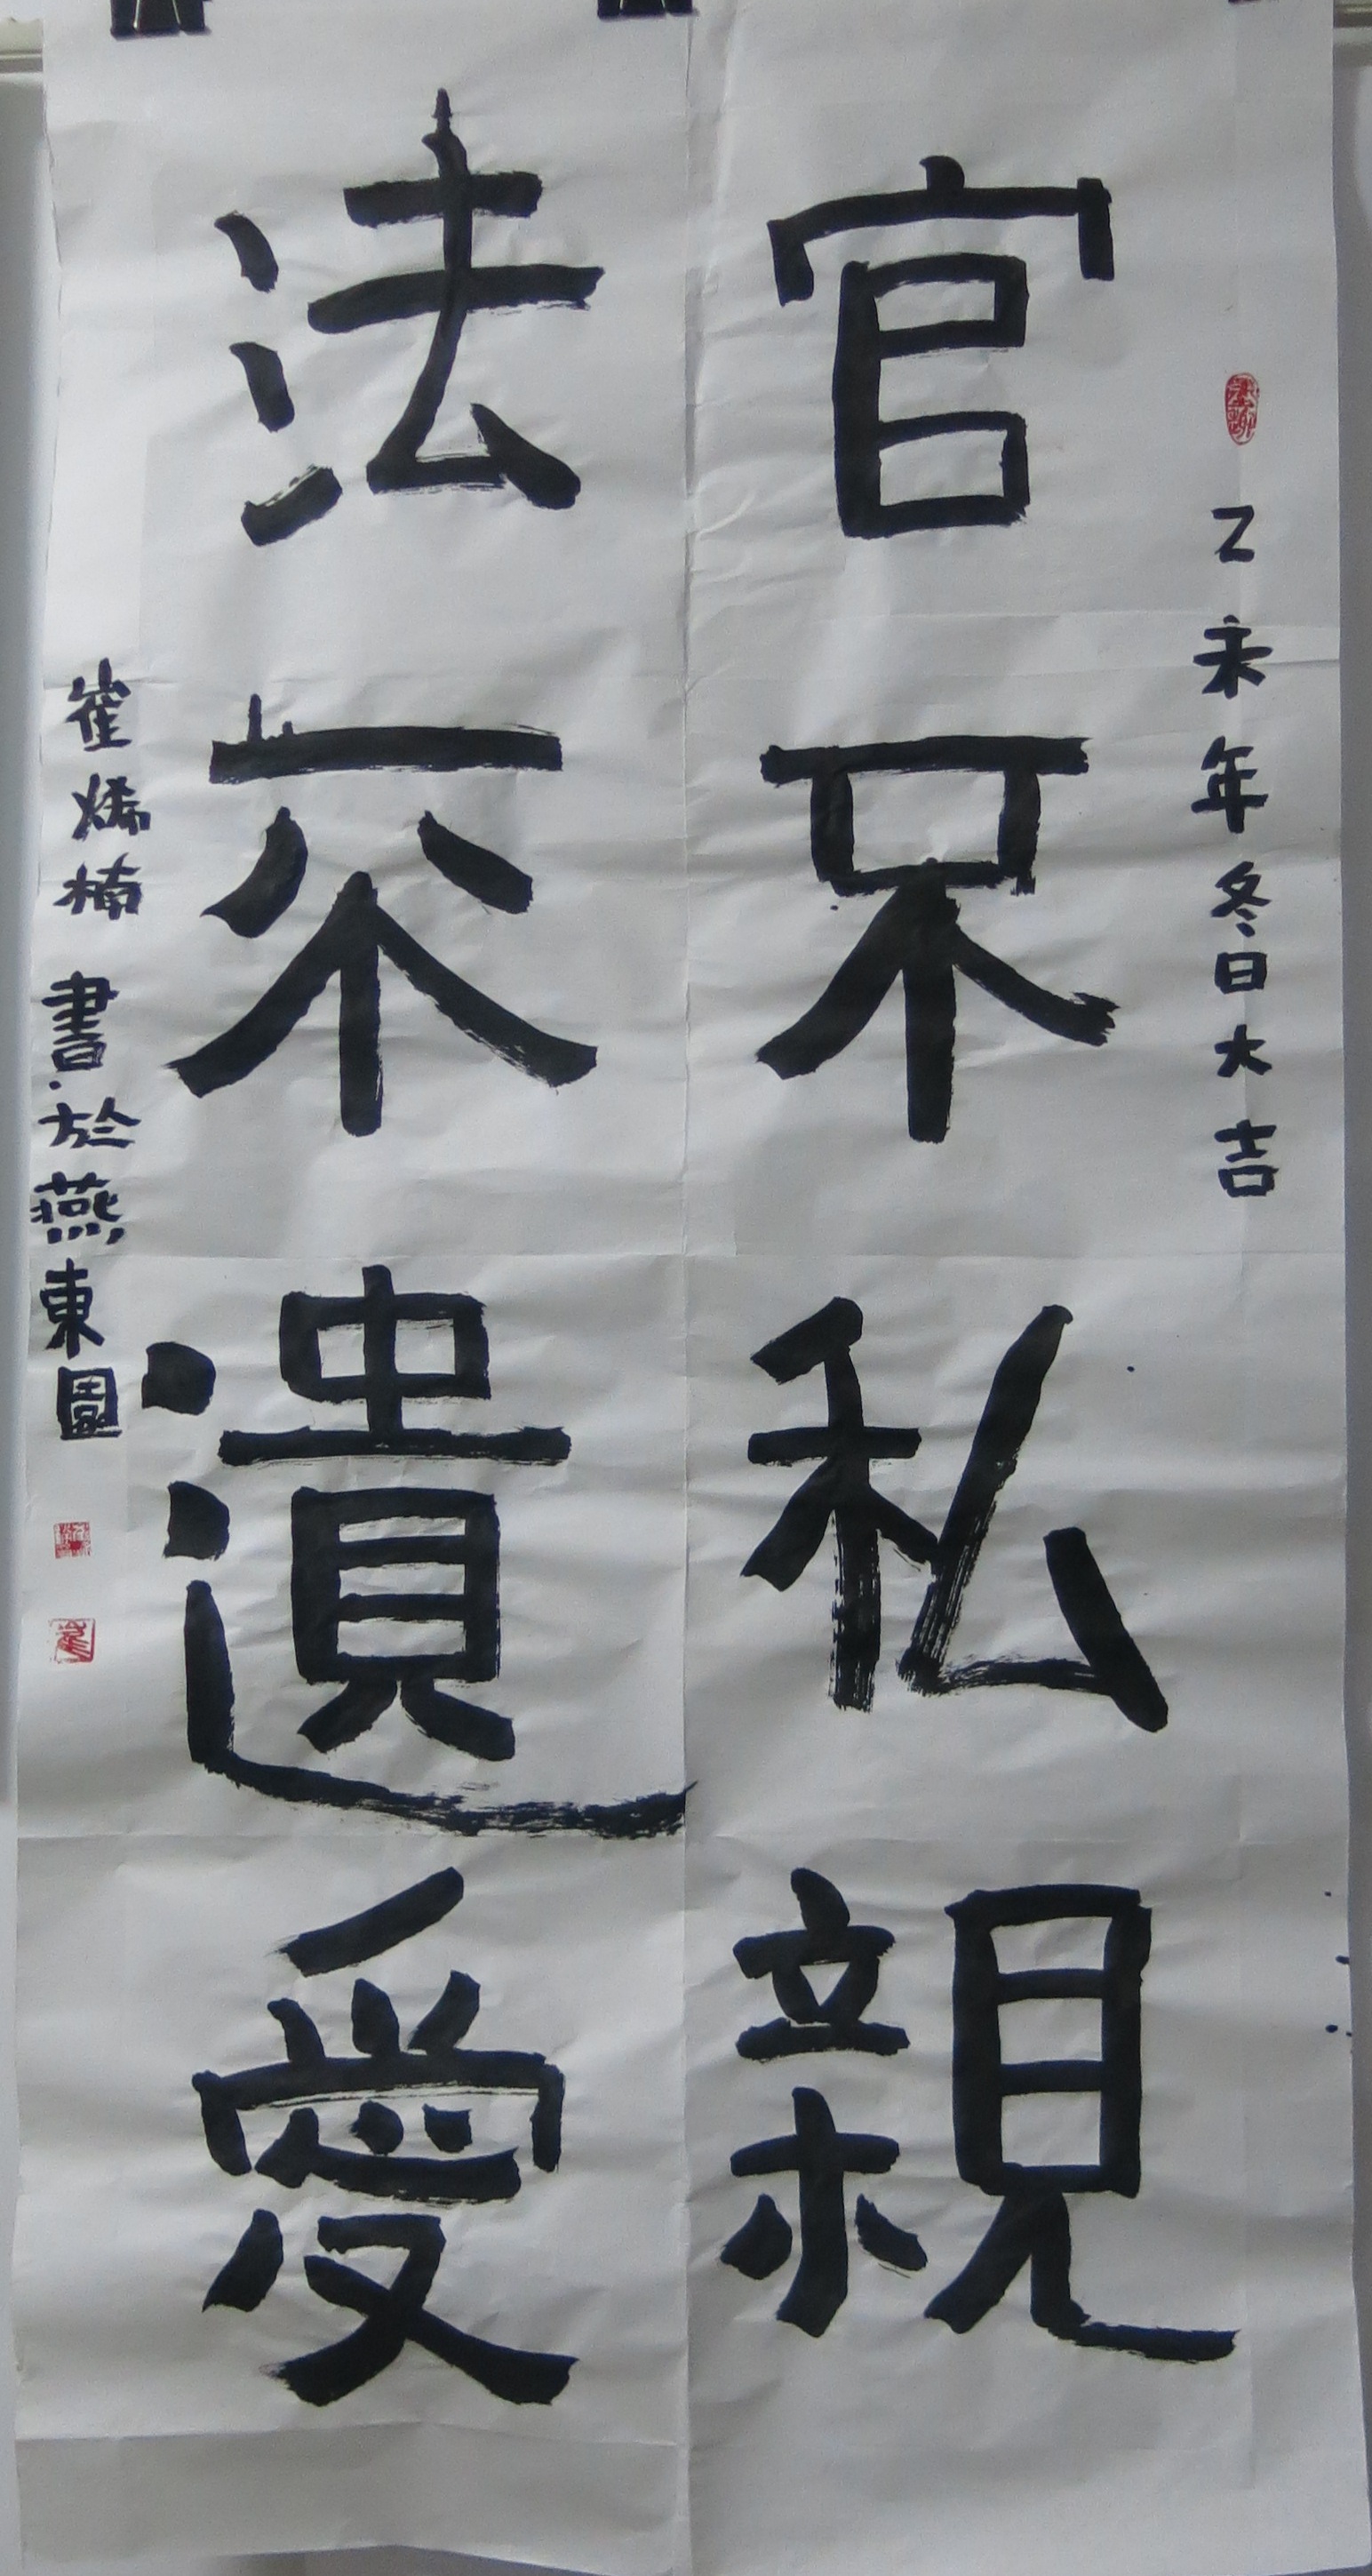 乙未年冬日大吉
官不私親
法不遺愛
崔烯楠書於燕東園